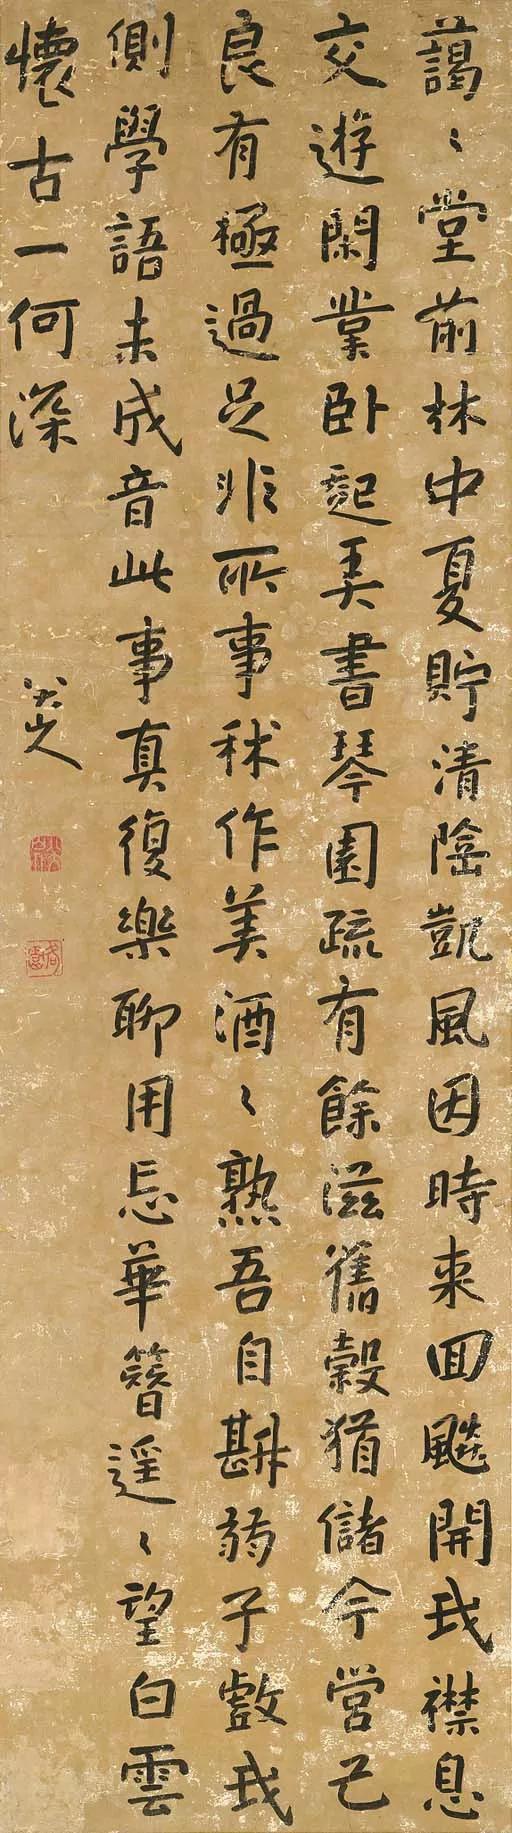 藹〻堂前林中夏貯清陰凱風因時來回飈開我襟息
交遊閑業卧起弄書琴園疏有餘滋舊穀猶儲今營己
良有極過足非所事秫作美酒〻熟吾自斟弱子戲我
側學語未成音此事真復樂聊用忘華簪遥〻望白雲
懷古一何深
八大山人